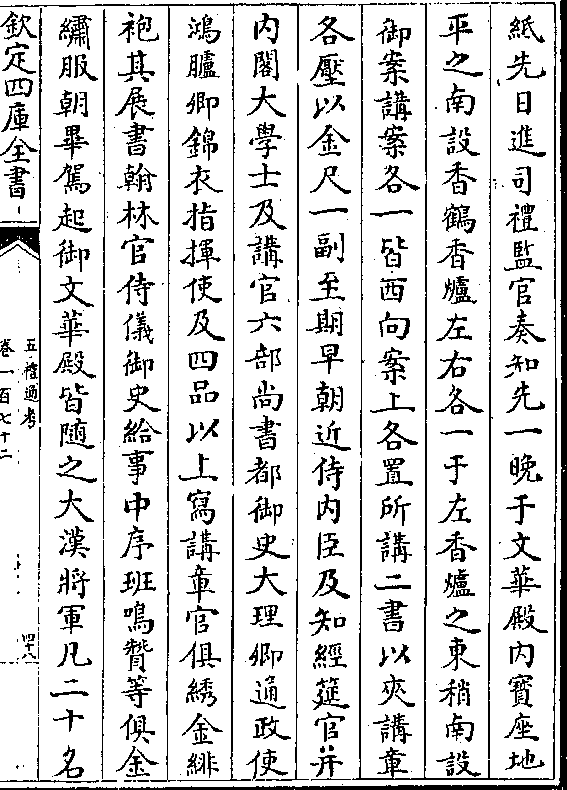 紙先日進司禮監官奏知先一晚于文華殿内寶座地
平之南設香鶴香爐左右各一于左香爐之東稍南設
御案講案各一皆西向案上各置所講二書以夾講章
各壓以金尺一副至期早朝近侍内臣及知經筵官并
内閣大學士及講官六部尚書都御史大理卿通政使
鴻臚卿錦衣指揮使及四品以上寫講章官俱綉金緋
袍其展書翰林官侍儀御史給事中序班鳴贊等俱金
繡服朝畢駕起御文華殿皆随之大漢將軍凡二十名
欽定四庫全書
五禮通考
卷一百七十二
四十八